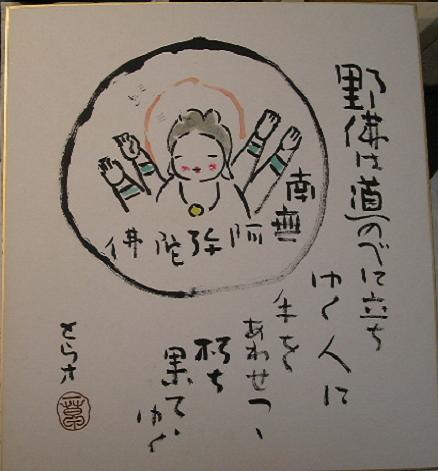 野佛は道のべに立ち
ゆく人に
手を
あわせつゝ
朽ち
果てゆく
南無
阿弥陀佛
とらオ